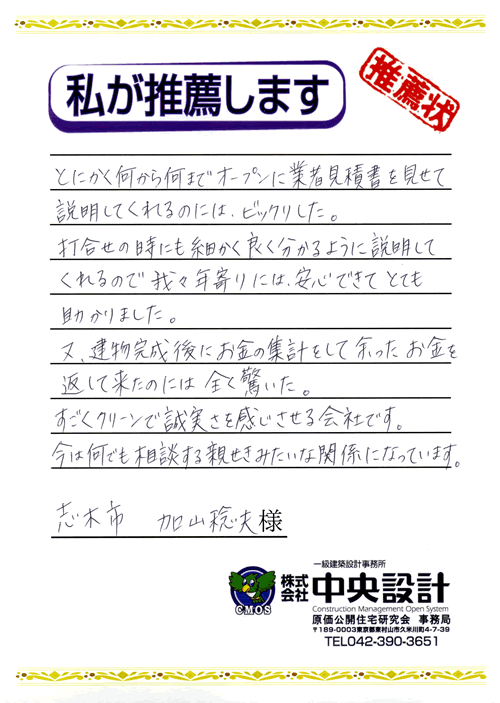 私が推薦します
推薦状
とにかく何から何までオープンに業者見積書を見せて
説明してくれるのには、ビックリした。
打合せの時にも細かく良く分かるように説明して
くれるので我々年寄りには、安心できてとても
助かりました。
又、建物完成後にお金の集計をして余ったお金を
返して来たのには全く驚いた。
すごくクリーンで誠実さを感じさせる会社です。
今は何でも相談する親せきみたいな関係になっています。
志木市 加山稔夫様
一級建築設計事務所
株式会社 中央設計
CMOS
Construction Management Open System
原価公開住宅研究会 事務局
〒189-0003東京都東村山市久米川町4-7-39
TEL042-390-3651